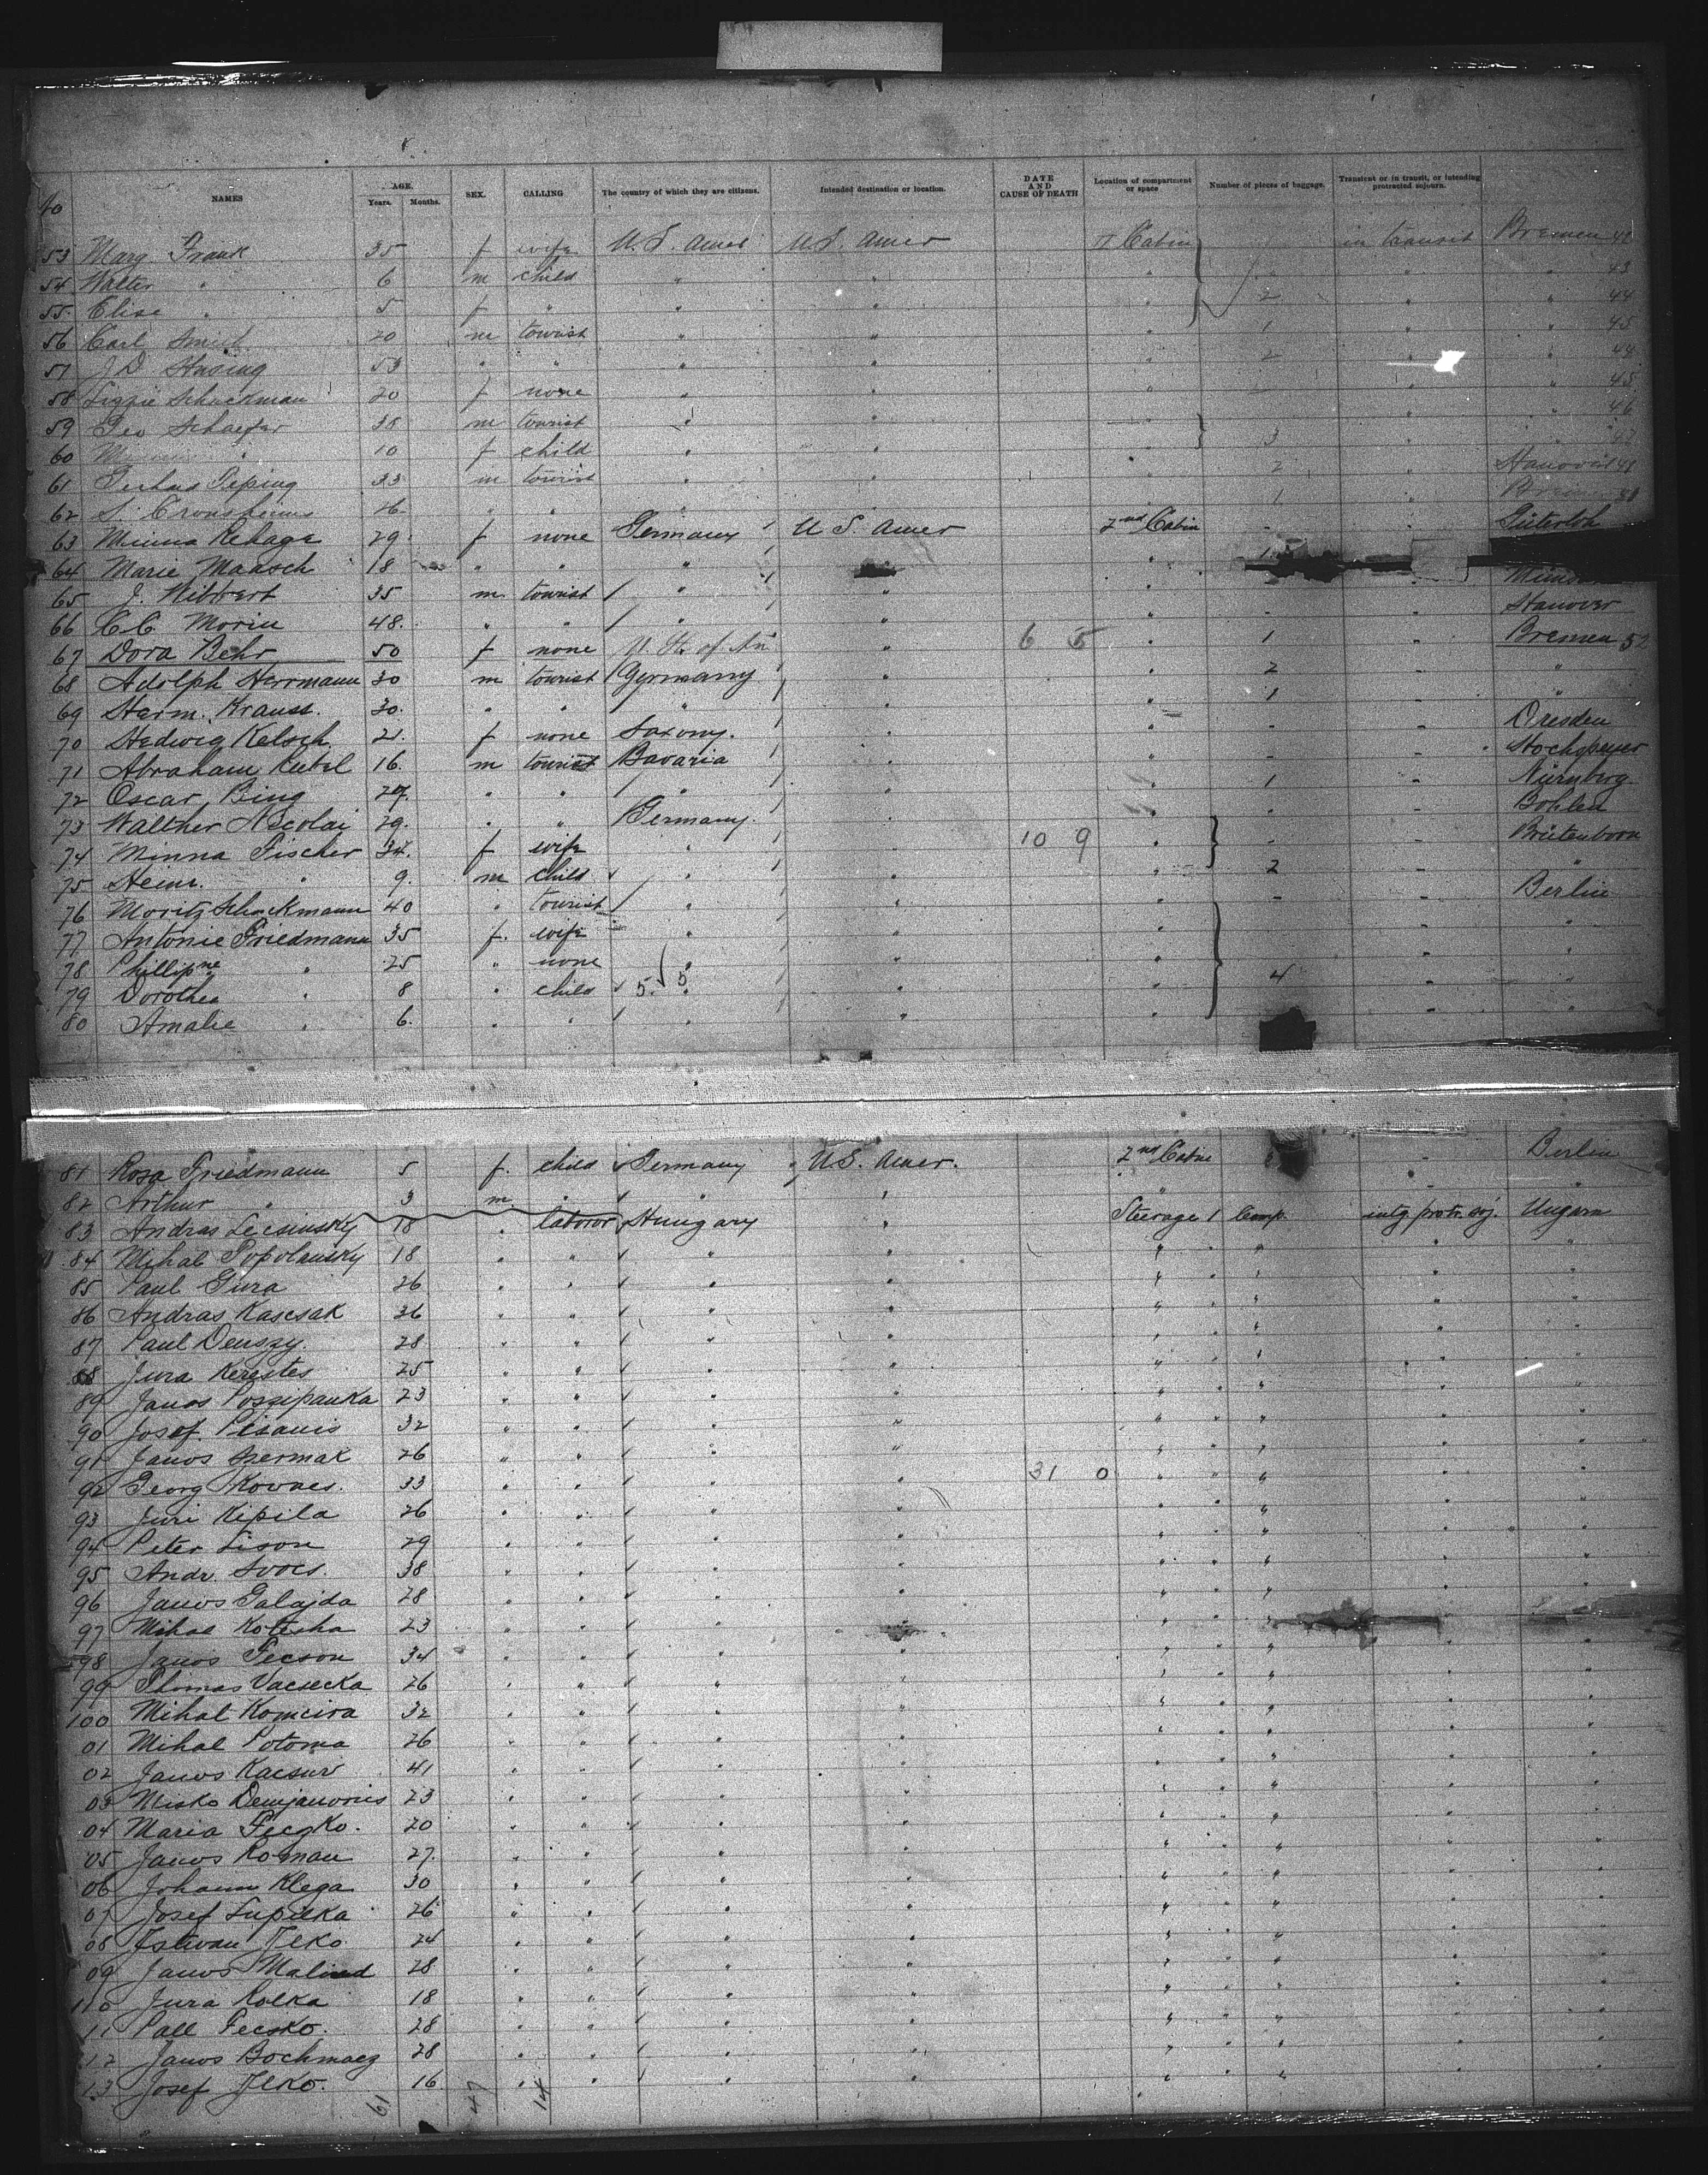 No
NAMES
AGE.
Years.
Months.
SEX.
CALLING
The country of which they are citizens.
Intended destination or location.
DATE AND CAUSE OF DEATH
Location of compartment or space
Number of pieces of baggage.
Transient or in transit, or intending protracted sojourn.
53 Mary Frank 35 f wife U.S. Amer U.S. Amer II Cabin in transit Bremen
54 Walter " 6 m child " " " " "
55 Elise " 5 f " " " " 2 " "
56 Carl 20 m tourist " " " 1 " "
57 J D Husing 53 " " " " " 2 " "
58 Lizzie Schuckman 20 f none " " " "
59 Geo Schaefer 38 m tourist " " "
60 " 10 f child " " " 3 "
61 Piping 33 m tourist " " " 2 " Hanover
62 S. " " " " " 1 "
63 Minna Rehage 29 f none Germany U S Amer 2nd Cabin - - Güterloh
64 Marie Maasch 18 " " " " "
65 J. Hibbert 35 m tourist " " " -
66 C. Morin 48. " " " " " - - Hanover
67 Dora Behr 50 f none U. St. of Am " 6 5 " 1 - Bremen 52
68 Adolph Herrmann 30 m tourist Germany " " 2 - "
69 Herm. Krauss. 30. " " " " " 1 - "
70 Hedwig Kelsch 21. f none Saxony. " " - - Dresden
71 Abraham Keibel 16. m tourist Bavaria " " - - Hochspeyer
72 Oscar Bing 27. " " " " " 1 - Nürnberg
73 Walther Nicolai 29. " " Germany. " " - - Bohlen
74 Minna Fischer 34. f wife " " 10 9 " - - Breitenborn
75 Heinr. " 9. m child " " " 2 - "
76 Moritz Schuckmann 40 " tourist " " " - - Berlin
77 Antonie Friedmann 35 f. wife " " " - "
78 Phillipne " 25 " none " " " - "
79 Dorothea " 8 " child 5. 5 " " 4 - "
80 Amalie " 6. " " " " " - "
81 Rosa Friedmann 5 f. child Germany U.S. Amer. 2nd Cabin - Berlin
82 Arthur " 3 m " " " " - "
83 Andras Lecsinsky 18 " laboror Hungary " Steerage 1 Comp. intg protr. soj. Ungarn
84 Mihal Popolansky 18 " " " " " " " " "
85 Paul Gura 26 " " " " " " " " "
86 Andras Kascsak 36 " " " " " " " " "
87 Paul Denszy. 28 " " " " " " " " "
88 Jura Kerestes 25 " " " " " " " " "
89 Janos Poszipanka 23 " " " " " " " " "
90 Josef Pisanis 32 " " " " " " " " "
91 Janos Szermak 26 " " " " " " " " "
92 Georg Kovacs. 33 " " " " 31 0 " " " " "
93 Juri Kipila 26 " " " " " " " " "
94 Peter Lison 29 " " " " " " " " "
95 Andr. Svocs. 38 " " " " " " " " "
96 Janos Galajda 28 " " " " " " " " "
97 Mihal Kotisha 23 " " " " " " "
98 Janos Fecson 34 " " " " " " " " "
99 Thomas Vacsecka 26 " " " " " " " " "
100 Mihal Komcira 32 " " " " " " " " "
01 Mihal Potoma 26 " " " " " " " " "
02 Janos Kacsur 41 " " " " " " " " "
03 Misko Demjanovics 23 " " " " " " " " "
04 Maria Feczko. 20 " " " " " " " " "
05 Janos Roman 27. " " " " " " " " "
06 Johann Klega 30 " " " " " " " " "
07 Josef Lupicka 26 " " " " " " " " "
08 Istwan Ilko 24 " " " " " " " " "
09 Janos Malined 28 " " " " " " " " "
110 Jura Kolka 18 " " " " " " " " "
11 Pall Fecsko. 28 " " " " " " " " "
12 Janos Bochmacz 28 " " " " " " " " "
13 Josef Ilko. 16 " " " " " " " " "
61 47 14